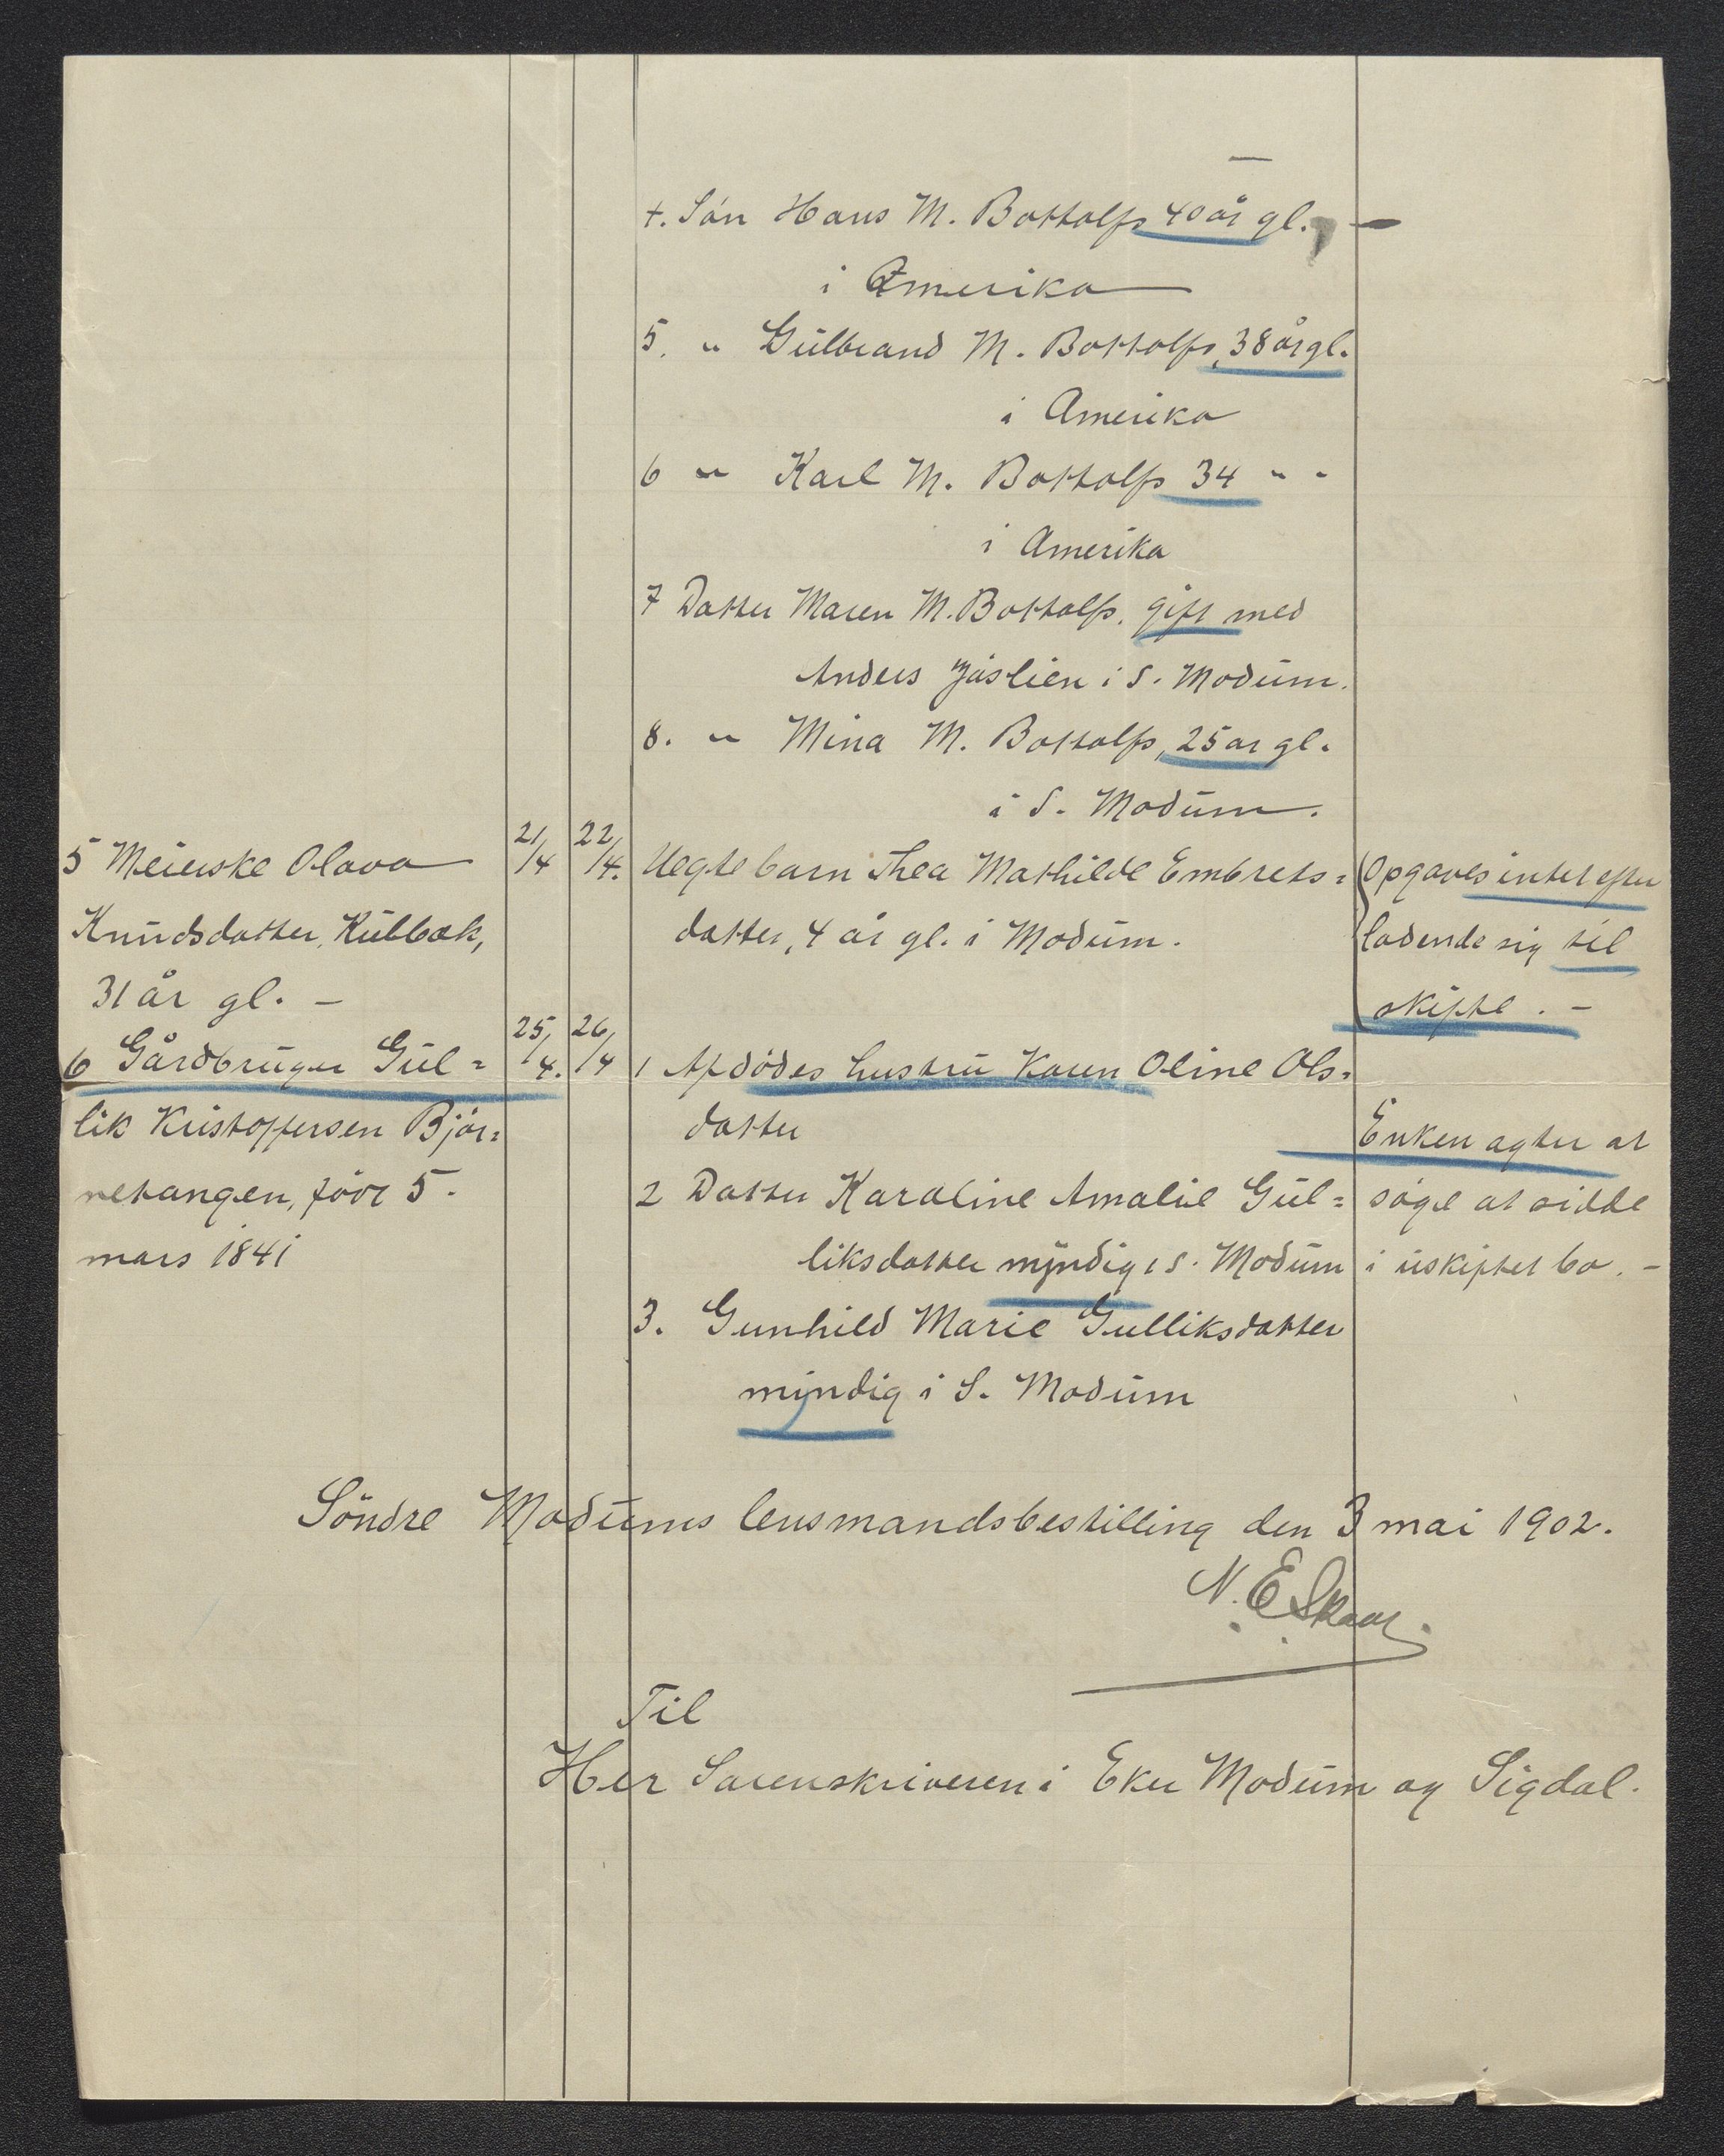 4. Søn Hans M. Bottolfs 40 år gl. –
i Amerika
5. " Gulbrand M. Bottolfs, 38 år gl.
i Amerika
6 " Karl M. Bottolfs 34 " "
i Amerika
7 Datter Maren M. Bottolfs. gift med
Anders i S. Modum.
8. " Mina M. Bottolfs, 25 år gl.
i S. Modum.
5 Meierske Olava 21/4 22/4. Uegte barn Thea Mathilde Embrets= Opgaves intet efter
Knudsdatter, Kulbæk, datter, 4 år gl. i Modum. ladende sig til
31 år gl. – skifte. –
6 Gårdbruger Gul= 25/4. 26/4 1 Afdødes hustru Karen Oline Ols=
lik Kristoffersen Bjør= datter Enken agter at
netangen, født 5. 2 Datter Karoline Amalie Gul= søge at sidde
mars 1841 liksdatter myndig i S. Modum i uskiftet bo. –
3. Gunhild Marie Gulliksdatter
myndig i S. Modum
Söndre Modums lensmandsbestilling den 3 mai 1902.
N. E. Skaar.
Til
Her Sorenskriveren i Eker Modum og Sigdal.